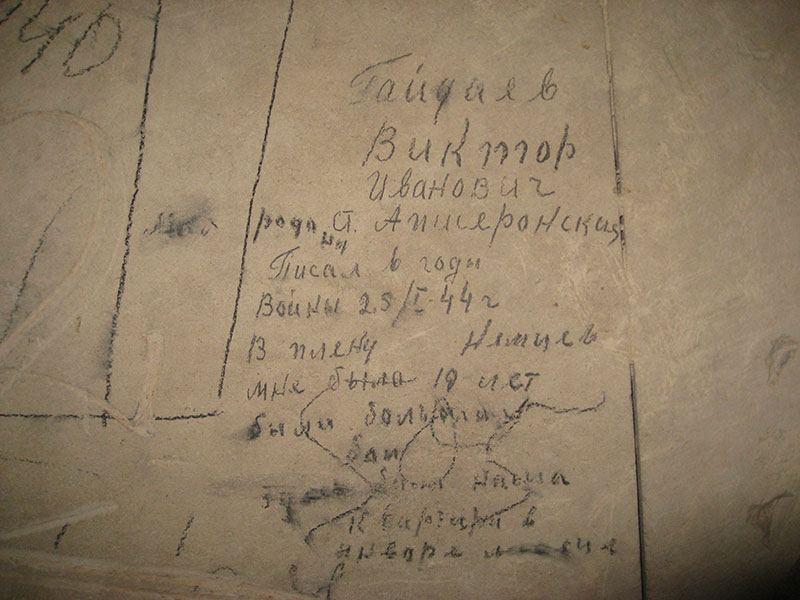 40
Гайдаев
Виктор
Иванович
Моя родина ст. Апшеронская
Писал в годы
Войны 25/I-44 г
В плену Немцев
мне было 19 лет
были большии
бои
здесь была наша
квартира в
январе месяце